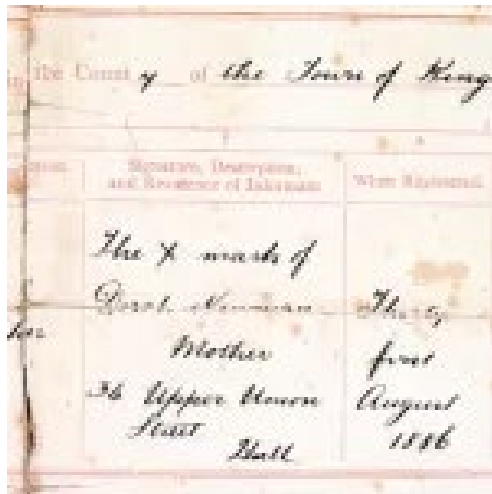 the County of the Town of King
Signature, Description,
and Residence of Informant
When Registered
The X mark of
Newman
Mother
36 Upper Union
Street
Hull
Thirty
first
August
1886